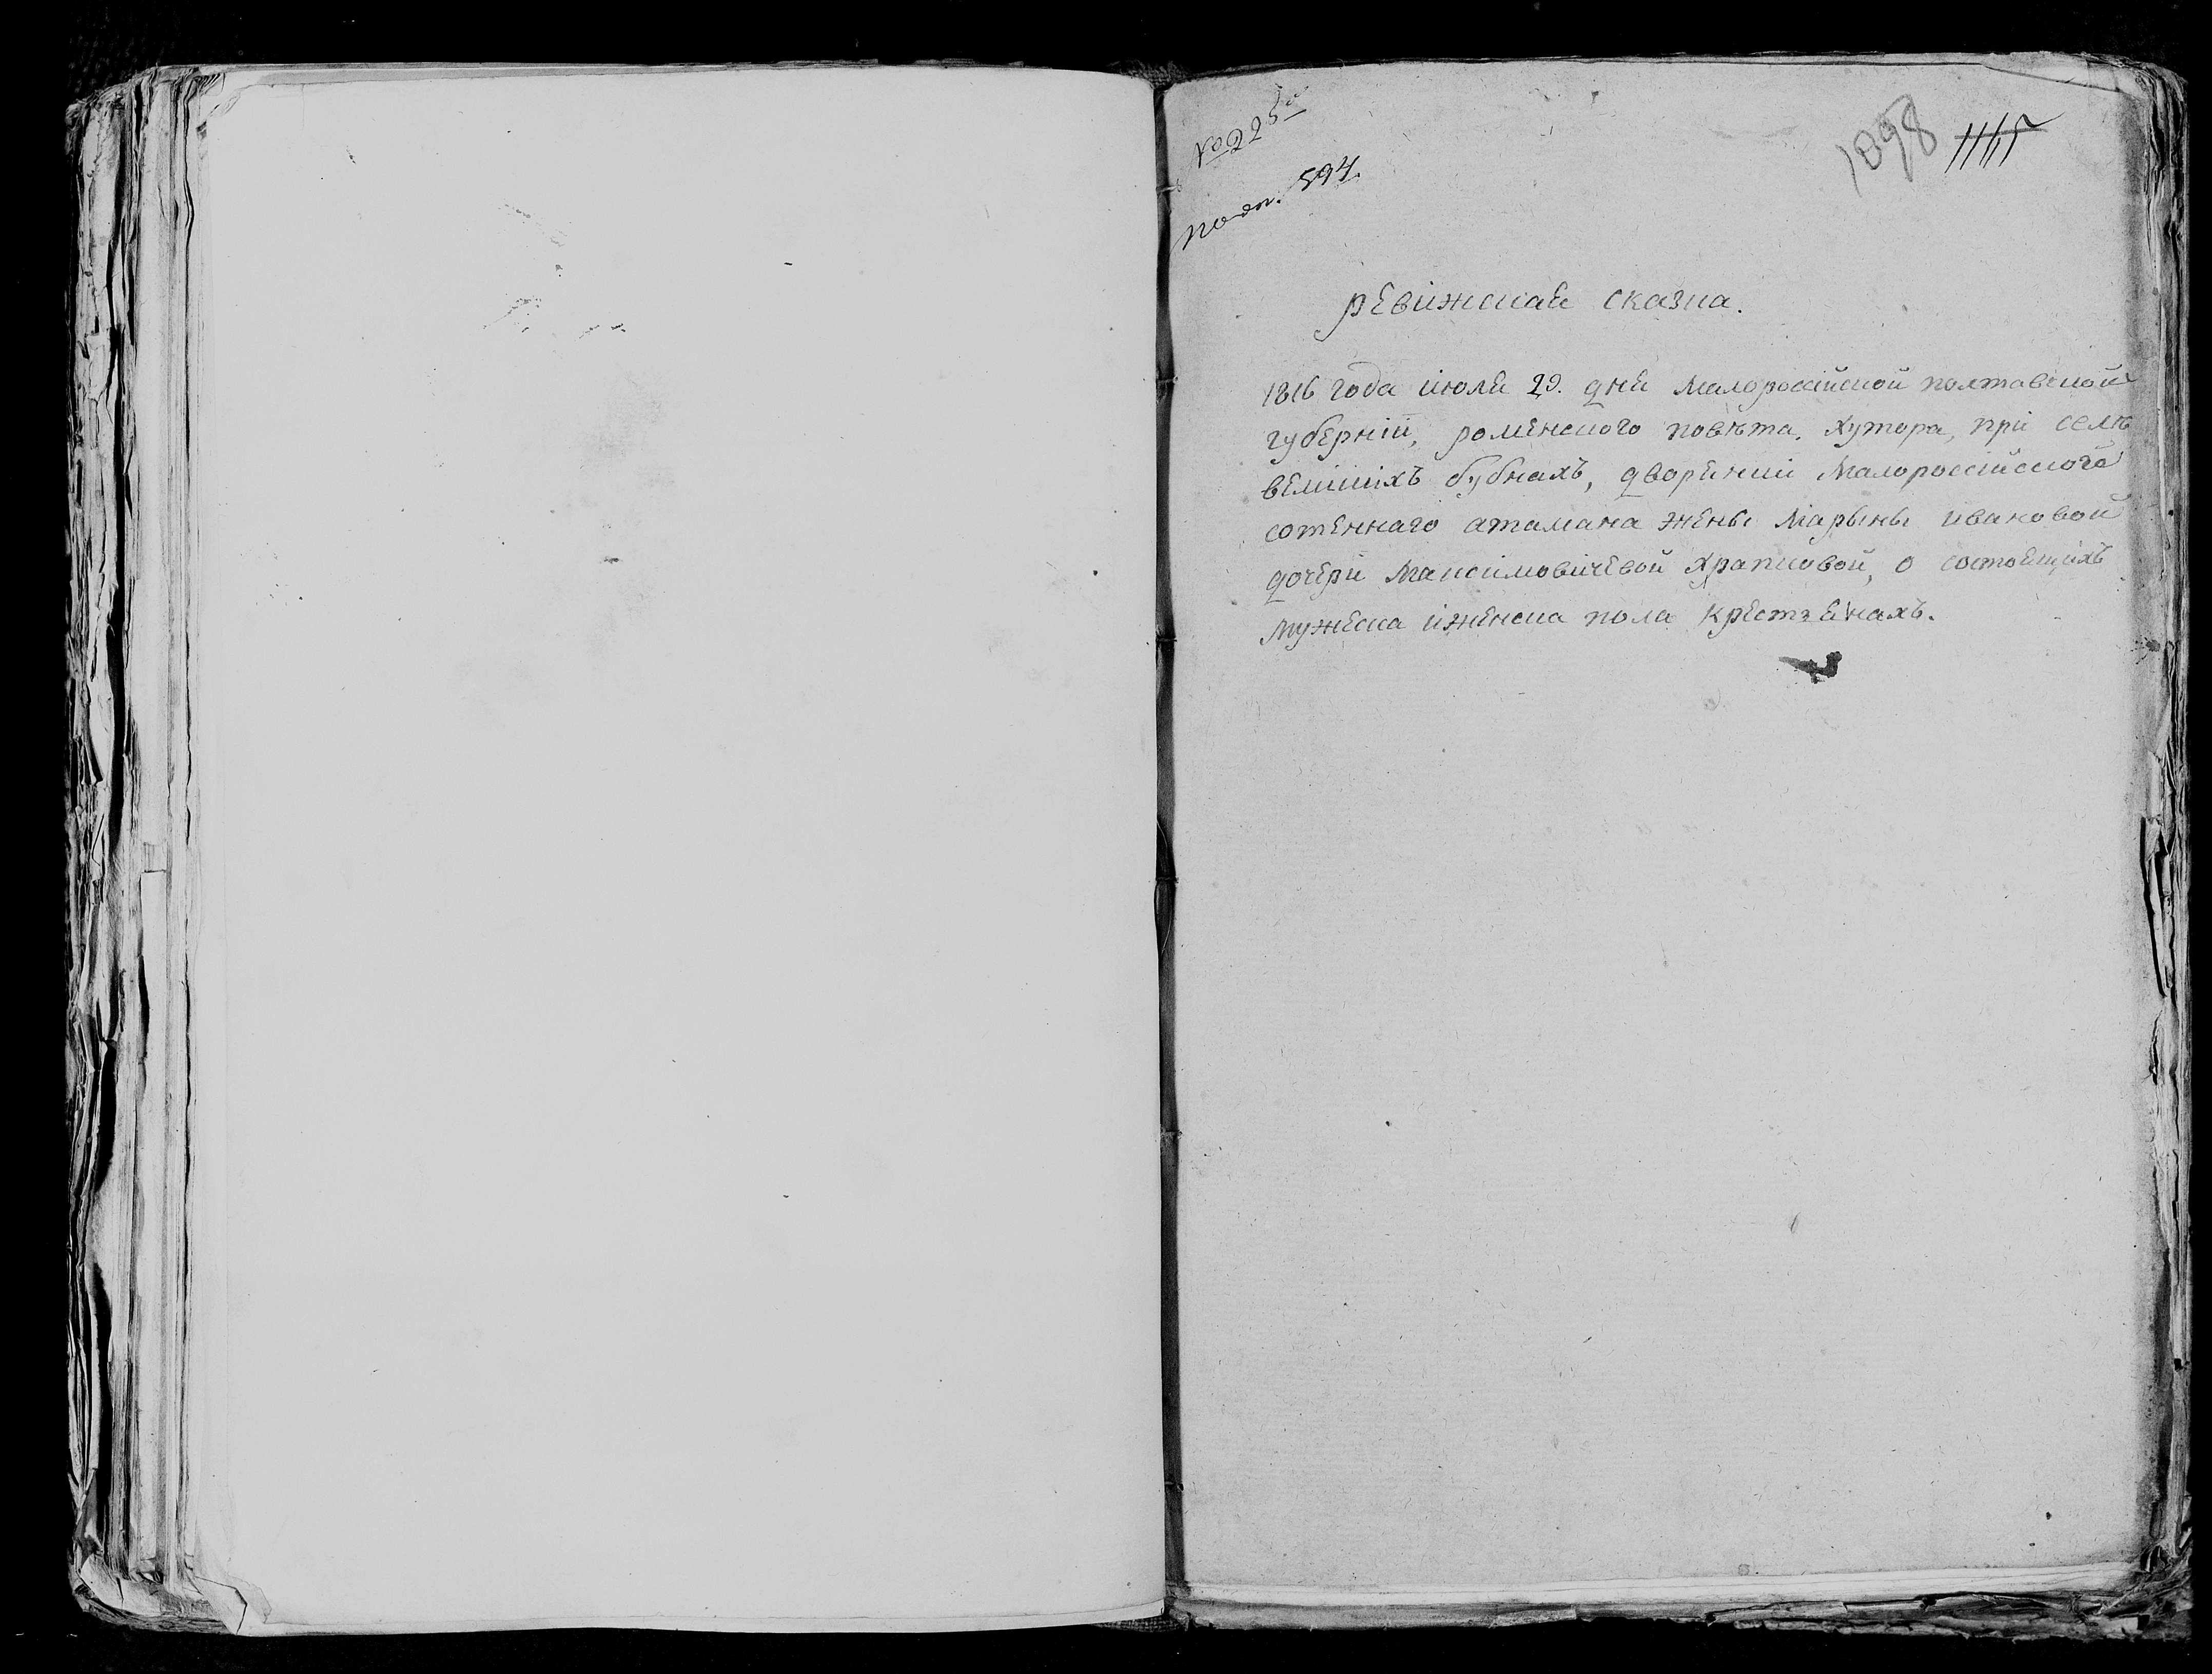 № 225й
по оп. 594.
1098 1115
Ревижская сказка.
1816 года июля 29. дня малороссійской полтавской
губерніи, роменского повѣта, хутора, при селѣ
великихъ бубнахъ, дворянки малороссійского
сотеннаго атамана жены Марыны ивановой
дочери Максимовичевой Храпковой, о состоящихъ
мужеска и женска пола крестьянахъ.